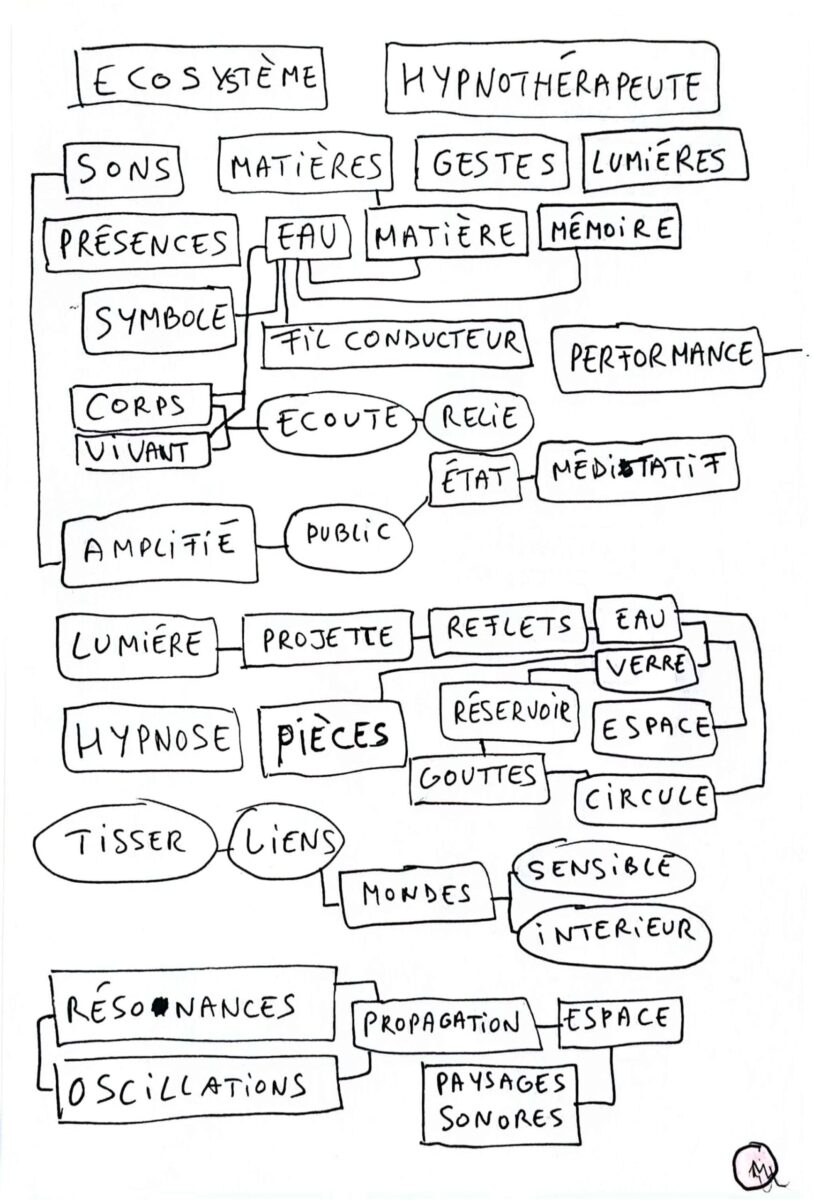 ECOSYSTÈME HYPNOTHÉRAPEUTE
SONS MATIÈRES GESTES LUMIÉRES
PRÉSENCES EAU MATIÈRE MÉMOIRE
SYMBOLE
FIL CONDUCTEUR
PERFORMANCE
CORPS
ECOUTE RELIE
VIVANT
ÉTAT MÉDITATIF
AMPLIFIÉ PUBLIC
LUMIÉRE PROJETTE REFLETS EAU
VERRE
HYPNOSE PIÈCES RÉSERVOIR ESPACE
GOUTTES
CIRCULE
TISSER LIENS
MONDES SENSIBLE
INTERIEUR
RÉSONANCES
PROPAGATION ESPACE
OSCILLATIONS
PAYSAGES
SONORES